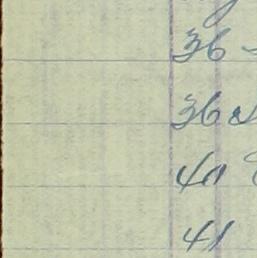 36
36
40
41